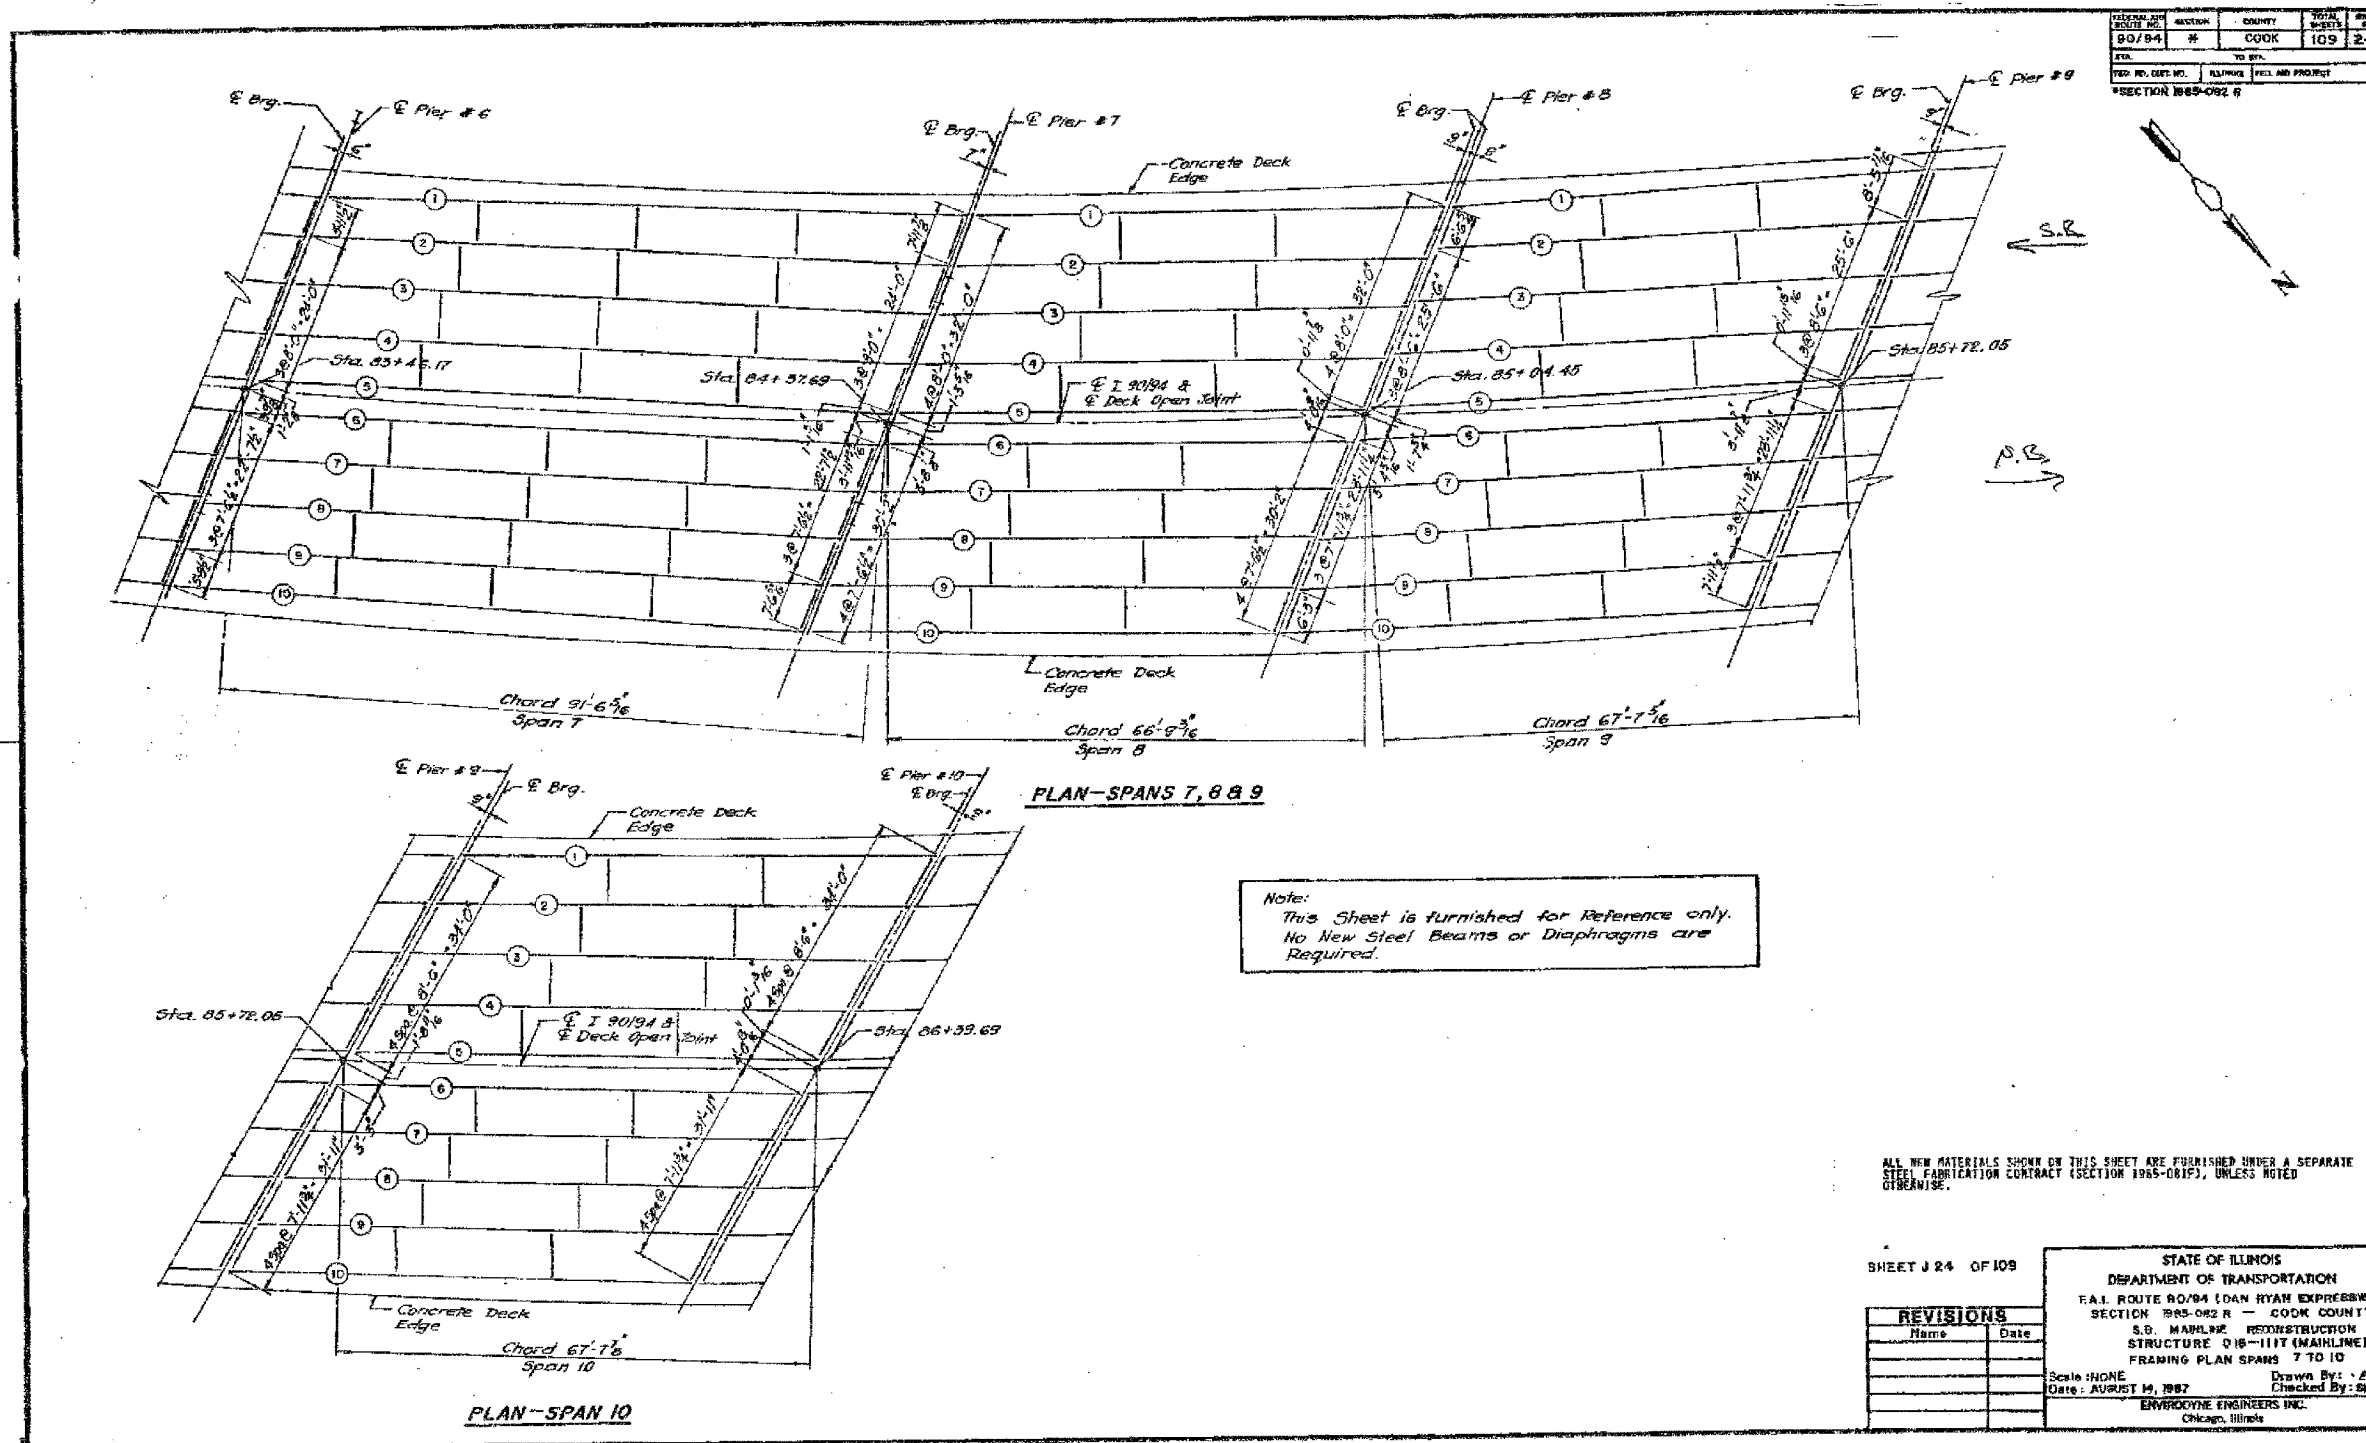 FEDERAL AID ROUTE NO.
SECTION
COUNTY
TOTAL SHEETS
90/94
*
COOK
109
STA.
TO STA.
FED. RD. DIST. NO.
ILLINOIS
FED. AID PROJECT
*SECTION 1985-082 R
℄ Brg.
℄ Pier #6
6"
℄ Brg.
℄ Pier #7
7"
℄ Brg.
℄ Pier #8
9"
8"
℄ Brg.
℄ Pier #9
9"
Concrete Deck
Edge
S.B.
N.B.
N
1
2
3
4
5
6
7
8
9
10
1
2
3
4
5
6
7
8
9
10
1
2
3
4
5
6
7
8
9
10
3@8'-0"=24'-0"
3@8'-0"= 24'-0"
4@8'-0"=32'-0"
4@8'-0"= 32'-0"
3@8'-6"= 25'-6"
3@8'-6"= 25'-6"
Sta. 83+46.17
Sta. 84+37.69
Sta. 85+04.45
Sta. 85+72.05
℄ I 90/94 &
℄ Deck Open Joint
3@7'-6½"=22'-7½"
3@7'-6½"= 22'-7½"
4@7'-6½"= 30'-2"
4@7'-6½"= 30'-2"
3@7'-11¾"= 23'-11¼"
3@7'-11¾"=23'-11¼"
6'-3"
7'-11½"
Concrete Deck
Edge
Chord 91'-6 5/16"
Span 7
Chord 66'-9 3/16"
Span 8
Chord 67'-7 5/16"
Span 9
PLAN-SPANS 7, 8 & 9
℄ Pier #9
℄ Brg.
9"
℄ Pier #10
℄ Brg.
9"
Concrete Deck
Edge
1
2
3
4
5
6
7
8
9
10
4Spa@8'-6"=34'-0"
4Spa@8'-6"= 34'-0"
Sta. 85+72.05
℄ I 90/94 &
℄ Deck Open Joint
Sta. 86+39.69
4Spa@7'-11¾"= 31'-11"
4Spa@7'-11¾"= 31'-11"
5'-3"
Concrete Deck
Edge
Chord 67'-7⅞"
Span 10
PLAN-SPAN 10
Note:
This Sheet is furnished for Reference only.
No New Steel Beams or Diaphragms are
Required.
ALL NEW MATERIALS SHOWN ON THIS SHEET ARE FURNISHED UNDER A SEPARATE
STEEL FABRICATION CONTRACT (SECTION 1985-081F), UNLESS NOTED
OTHERWISE.
SHEET J 24 OF 109
REVISIONS
Name
Date
STATE OF ILLINOIS
DEPARTMENT OF TRANSPORTATION
F.A.I. ROUTE 90/94 (DAN RYAN EXPRESSW
SECTION 1985-082 R — COOK COUNT
S.B. MAINLINE RECONSTRUCTION
STRUCTURE 016-1117 (MAINLINE)
FRAMING PLAN SPANS 7 TO 10
Scale: NONE
Drawn By:
Date: AUGUST 14, 1987
Checked By:
ENVIRODYNE ENGINEERS INC.
Chicago, Illinois